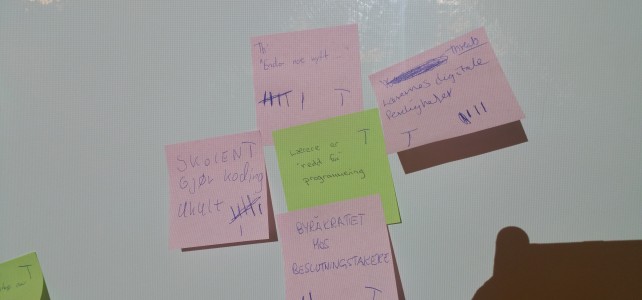 T:
"Enda noe nytt ..."
T
Threats
Lærernes digitale
Ferdigheter
T
SKOLEN T
Gjør koding
Ukult
Lærere er T
"redd for"
programmering
BYRÅKRATIET
HOS
BESLUTNINGSTAKERE
T
T